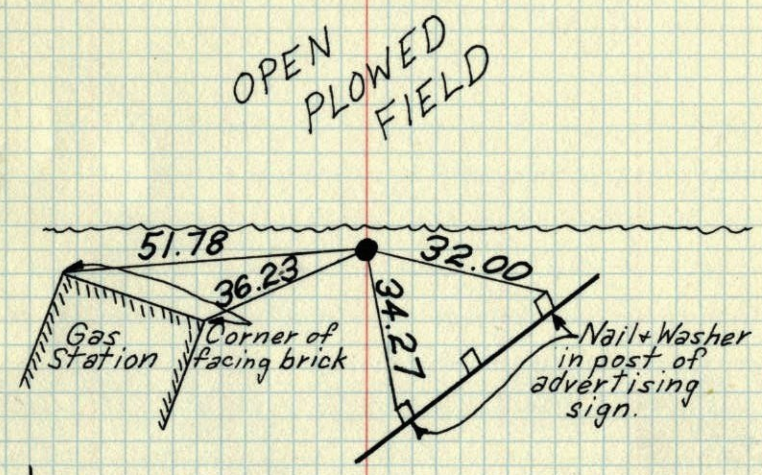 OPEN
PLOWED
FIELD
51.78
36.23
32.00
34.27
Gas
Station
Corner of
facing brick
Nail + Washer
in post of
advertising
sign.